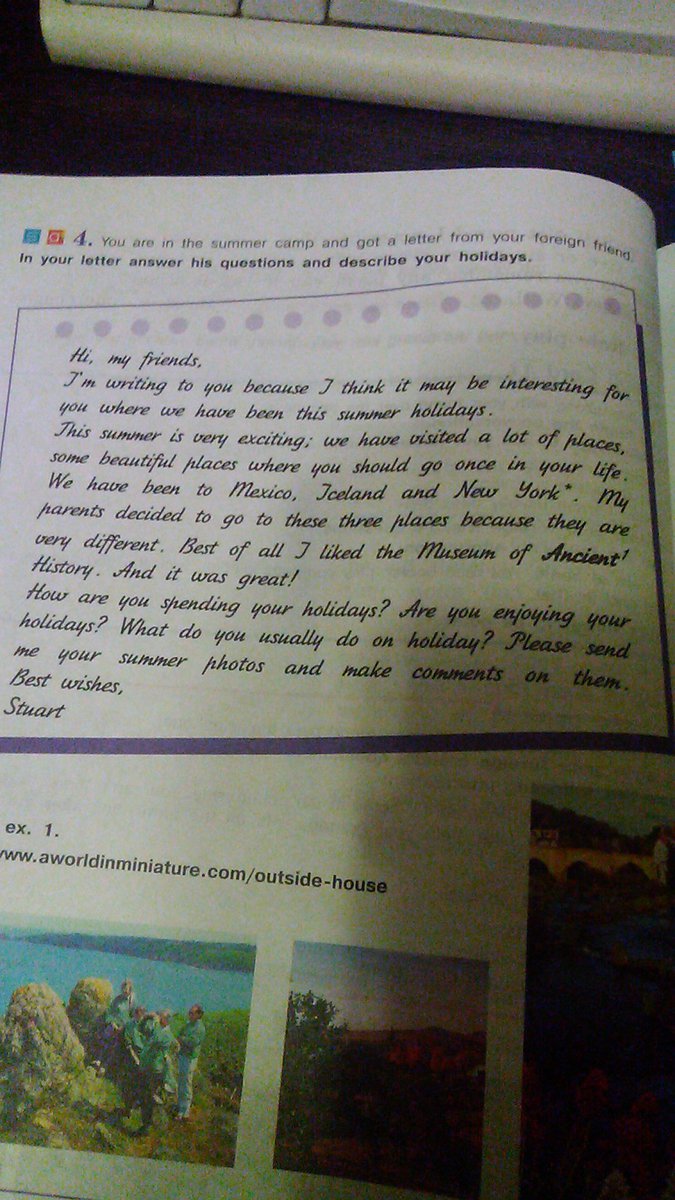 4. You are in the summer camp and got a letter from your foreign friend.
In your letter answer his questions and describe your holidays.
Hi, my friends,
I'm writing to you because I think it may be interesting for
you where we have been this summer holidays.
This summer is very exciting; we have visited a lot of places,
some beautiful places where you should go once in your life.
We have been to Mexico, Iceland and New York*. My
parents decided to go to these three places because they are
very different. Best of all I liked the Museum of Ancient¹
History. And it was great!
How are you spending your holidays? Are you enjoying your
holidays? What do you usually do on holiday? Please send
me your summer photos and make comments on them.
Best wishes,
Stuart
ex. 1.
www.aworldinminiature.com/outside-house